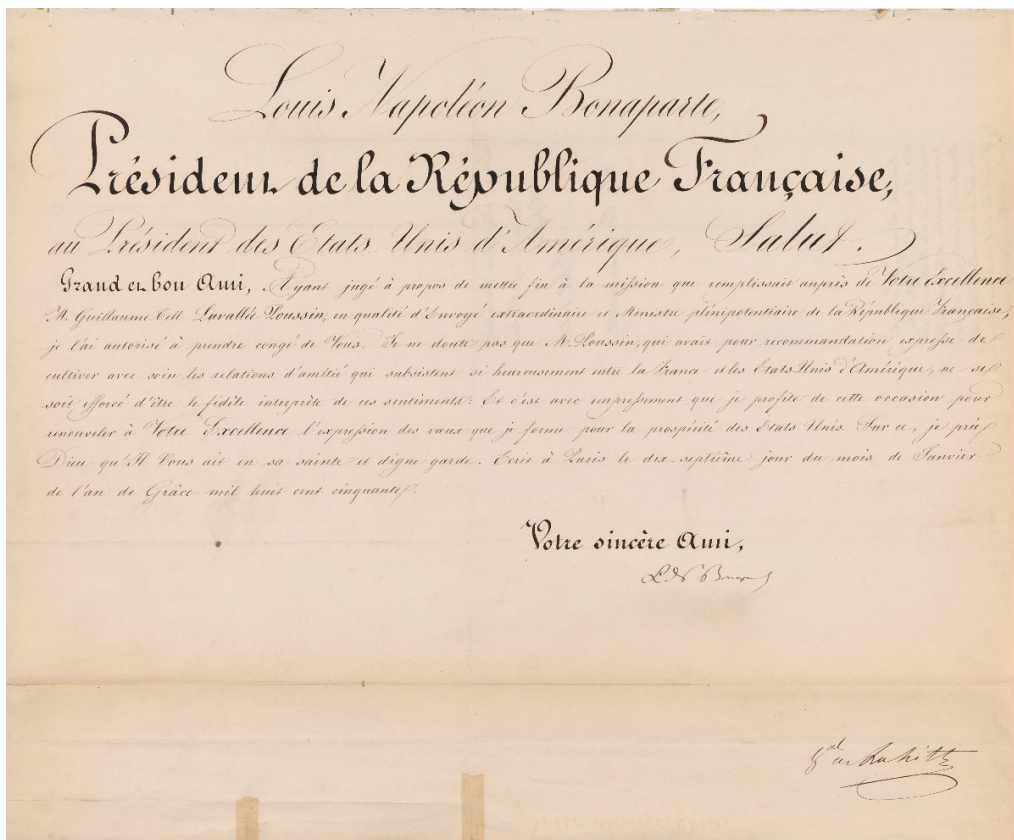 Louis Napoléon Bonaparte,
Président de la République Française,
au Président des Etats Unis d'Amérique, Salut.
Grand et bon Ami, Ayant jugé à propos de mettre fin à la mission que remplissait auprès de Votre Excellence
M. Guillaume Tell Lavallée Poussin, en qualité d'Envoyé extraordinaire et Ministre plénipotentiaire de la République Française,
je l'ai autorisé à prendre congé de Vous. Je ne doute pas que M. Poussin, qui avait pour recommandation expresse de
cultiver avec soin les relations d'amitié qui subsistent si heureusement entre la France et les Etats Unis d'Amérique, ne se
soit efforcé d'être le fidèle interprète de ces sentiments. Et c'est avec empressement que je profite de cette occasion pour
renouveler à Votre Excellence l'expression des vœux que je forme pour la prospérité des Etats Unis. Sur ce, je prie
Dieu qu'Il Vous ait en sa sainte et digne garde. Ecrit à Paris le dix-septième jour du mois de Janvier
de l'an de Grâce mil huit cent cinquante.
Votre sincère Ami,
L. N. Bonaparte